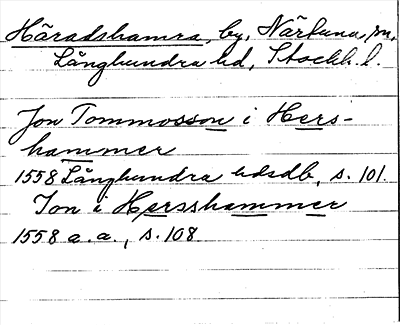 Häradshamra, by, Närtuna sn,
Långhundra hd, Stockh. l.
Jon Tommosson i Hers-
hammer
1558 Långhundra hdsdb, s. 101.
Jon i Hersshammer
1558 a. a., s. 108